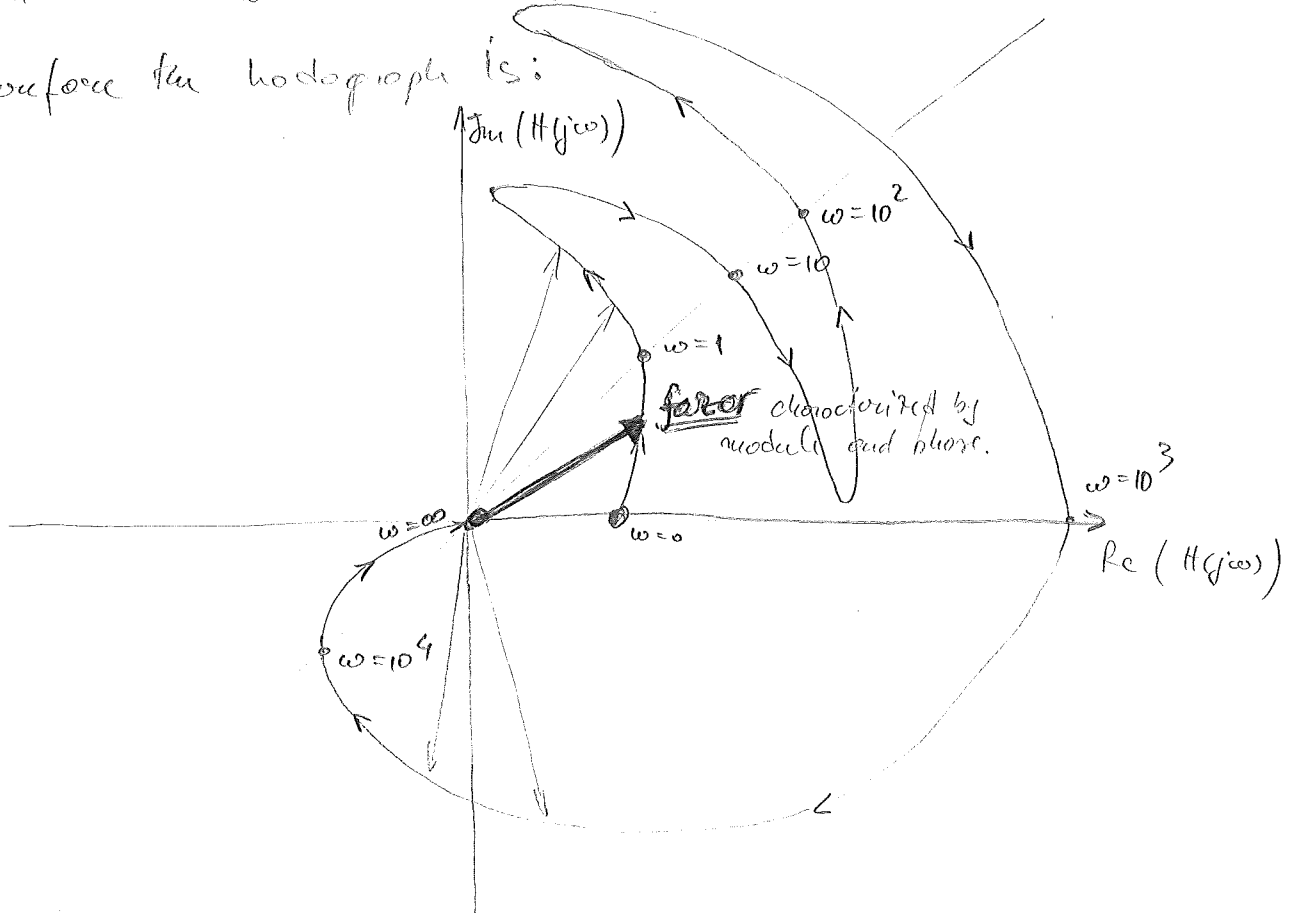 the hodograph is:
Im (H(jω))
ω=10²
ω=10
ω=1
fazor characterized by
module and phase.
ω=10³
ω=∞
ω=0
Re (H(jω))
ω=10⁴